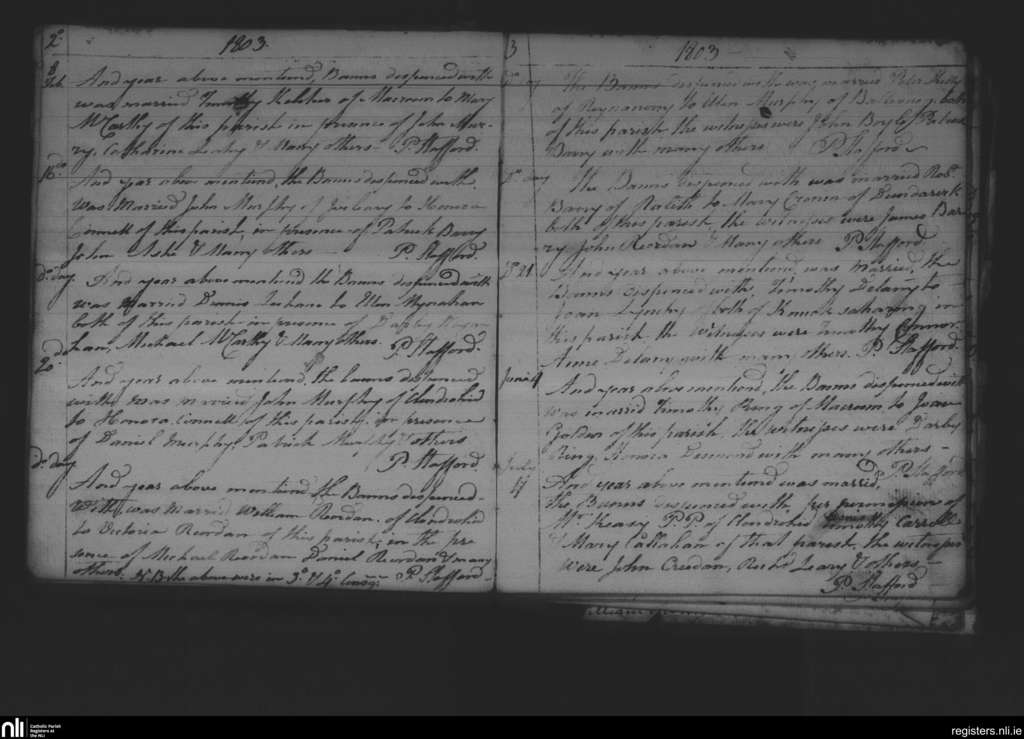 2d. 1803
8 Feb. And year above mentiond, Banns dispenced with
was married Timothy Kelcher of Macroom to Mary
McCarthy of this parish in presence of John Mur-
ry, Catharine Leahy & Many others - P. Stafford.
16 do And year above mentiond, the Banns dispenced with
was Married John Murphy of to Honora
Connell of this parish, in presence of Patrick Barry
John & Many others - P. Stafford.
Do. day And year above mentiond the Banns dispenced with
was married Dennis to Ellen Moynahan
both of this parish in presence of Darby
han, Michael McCarthy & Many others. P. Stafford.
20 do
And year above mentiond, the banns dispenced
with was married John Murphy of Clondrohid
to Honora Connell of this parish, in presence
of Daniel Murphy, Patrick & others
P. Stafford.
Do. day
And year above mentiond the Banns dispenced
With, was Married William Reordan of Clondrohid
to Victoria Reordan of this parish, in the pre
sence of Michael Reordan Daniel Reordan & many
others. NB the above were in 3o. & 4o. P. Stafford -
3 1803
Do. day The Banns dispenced with was married Peter Kelly
of to Ellen Murphy of both
of this parish the witnesses were John Boyle
Barry with many others P. Stafford
Do. day The Banns dispenced with was married Robt.
Barry of to Mary Cronen of Dundareirk
both of this parish, the witnesses were James Bar
ry John Reordan & Many others P. Stafford
Do 21 And year above mentiond, was married, the
Banns dispenced with, Timothy Delany to
Joan both of in
this parish, the Witnesses were Timothy Connor
Anne Delany with many others. P. Stafford.
June 4 And year above mentiond, the Banns dispenced with
was married Timothy Ring of Macroom to Joan
Golden of this parish, the witnesses were Darby
Ring, Honora Desmond with many others -
P. Stafford
July 11 And year above mentiond was married,
the Banns dispenced with, per permission of
Mr. Treasy P.P. of Clondrohid Timothy Carroll
& Mary Callahan of that parish, the witnesses
were John Creedan, Richd. Leary & others, -
P. Stafford
nli Catholic Parish
Registers at
the NLI
registers.nli.ie